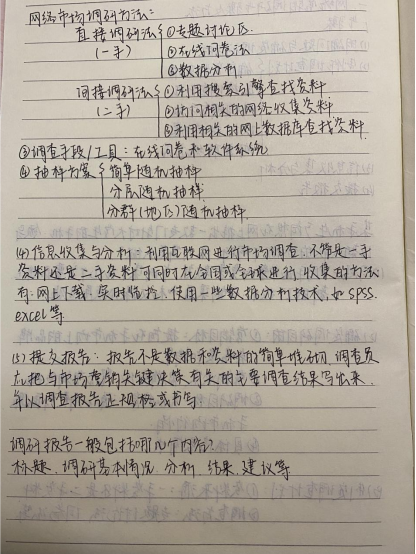 网络市场调研方法:
直接调研法 ①专题讨论区
(一手) ②在线问卷法
③数据分析
间接调研法 ①利用搜索引擎查找资料
(二手) ②访问相关的网络收集资料
③利用相关的网上数据库查找资料
③调查手段/工具:在线问卷和软件系统
④抽样方案 简单随机抽样
分层随机抽样
分群(地区)随机抽样
(4)信息收集与分析:利用互联网进行市场调查,不管是一手
资料还是二手资料,可同时在全国或全球进行,收集的方法
有:网上下载,实时监控,使用一些数据分析技术,如SPSS.
excel等
(5)提交报告:报告不是数据和资料的简单堆砌,调查员
应把与市场营销关键决策有关的主要调查结果写出来,
并以调查报告正规格式书写
调研报告一般包括哪几个内容?
标题、调研基本情况、分析、结果、建议等